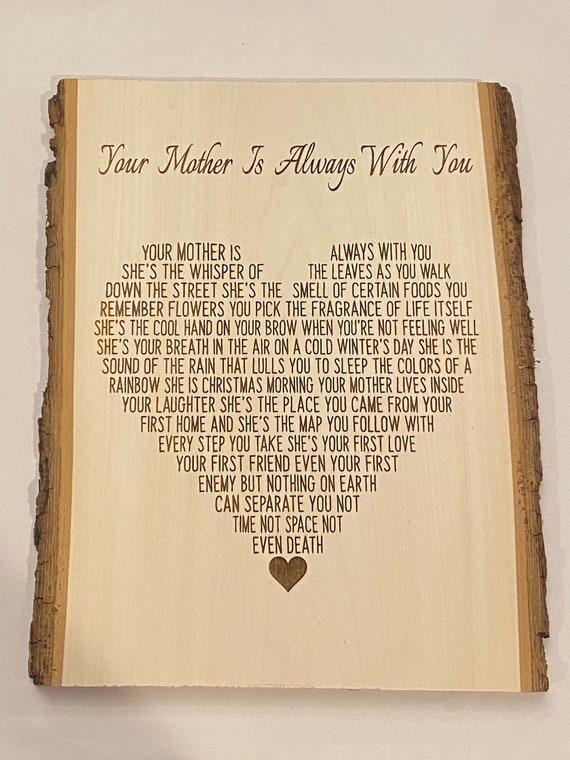 Your Mother Is Always With You
YOUR MOTHER IS ALWAYS WITH YOU
SHE'S THE WHISPER OF THE LEAVES AS YOU WALK
DOWN THE STREET SHE'S THE SMELL OF CERTAIN FOODS YOU
REMEMBER FLOWERS YOU PICK THE FRAGRANCE OF LIFE ITSELF
SHE'S THE COOL HAND ON YOUR BROW WHEN YOU'RE NOT FEELING WELL
SHE'S YOUR BREATH IN THE AIR ON A COLD WINTER'S DAY SHE IS THE
SOUND OF THE RAIN THAT LULLS YOU TO SLEEP THE COLORS OF A
RAINBOW SHE IS CHRISTMAS MORNING YOUR MOTHER LIVES INSIDE
YOUR LAUGHTER SHE'S THE PLACE YOU CAME FROM YOUR
FIRST HOME AND SHE'S THE MAP YOU FOLLOW WITH
EVERY STEP YOU TAKE SHE'S YOUR FIRST LOVE
YOUR FIRST FRIEND EVEN YOUR FIRST
ENEMY BUT NOTHING ON EARTH
CAN SEPARATE YOU NOT
TIME NOT SPACE NOT
EVEN DEATH